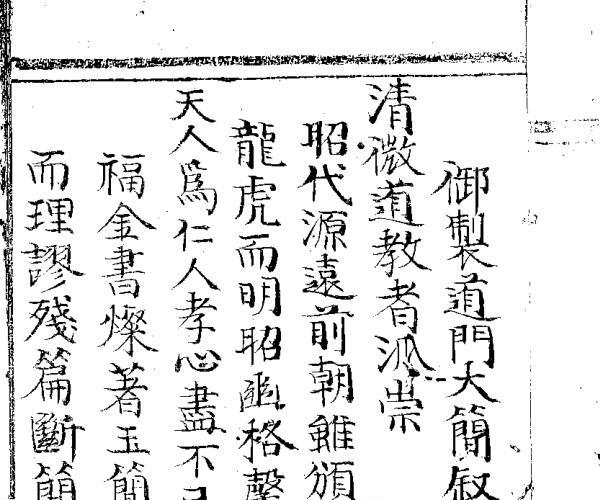 御製道門大簡叙
清微道教者派崇
昭代源遠前朝雖頒
龍虎而明昭幽格馨
天人爲仁人孝心盡不
福金書燦著玉簡
而理謬殘篇斷簡